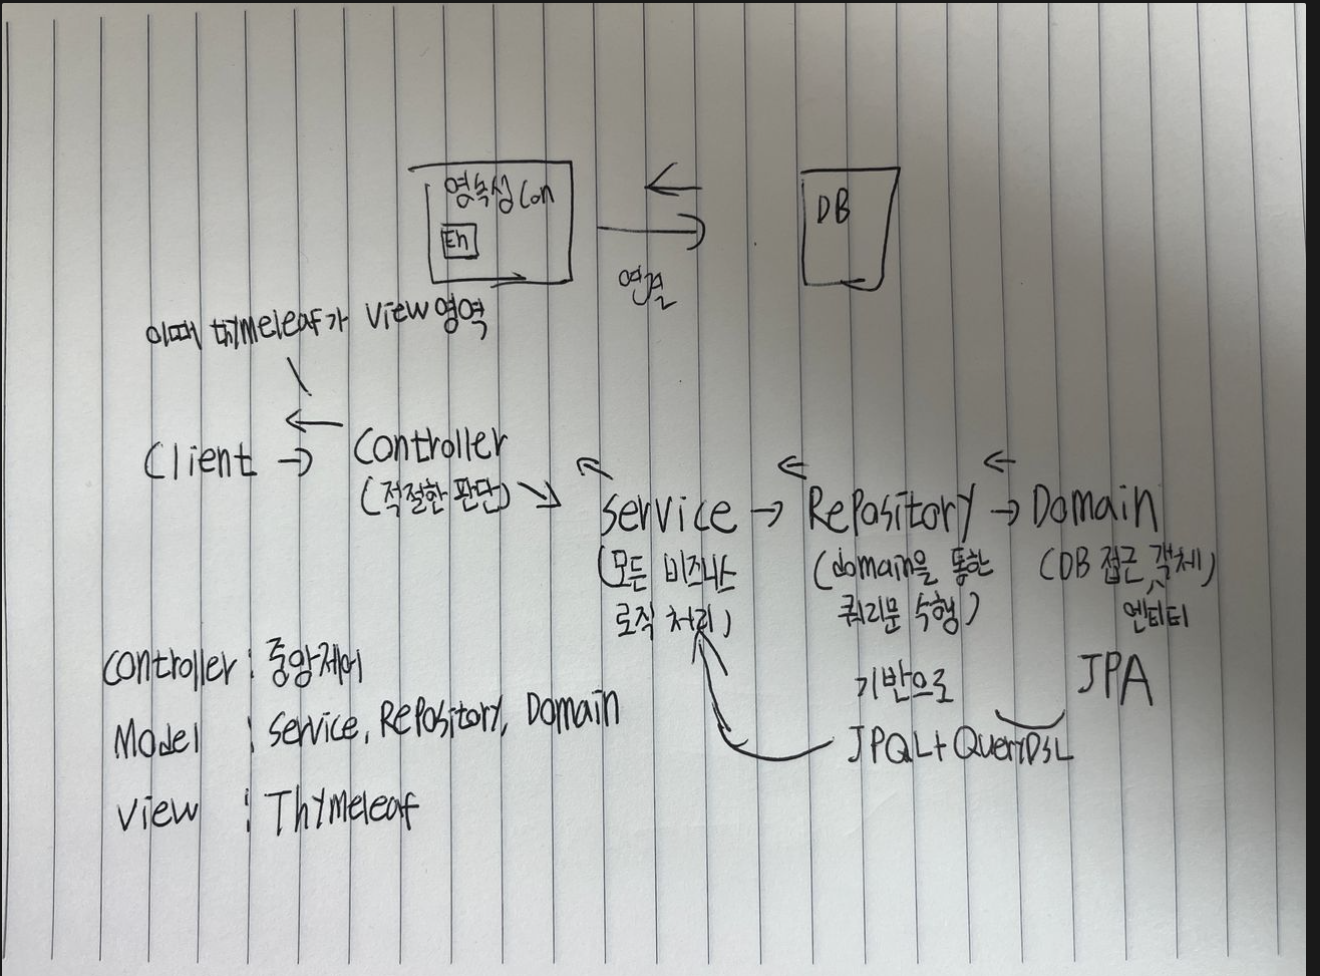 영속성 Con
En
DB
연결
이때 thymeleaf가 view 영역
Client → Controller
(적절한 판단)
Service → Repository → Domain
(모든 비즈니스 로직 처리)
(domain을 통한
쿼리문 수행)
(DB 접근 객체)
엔티티
기반으로
JPA
JPQL + QueryDSL
Controller : 중앙제어
Model : Service, Repository, Domain
View : Thymeleaf